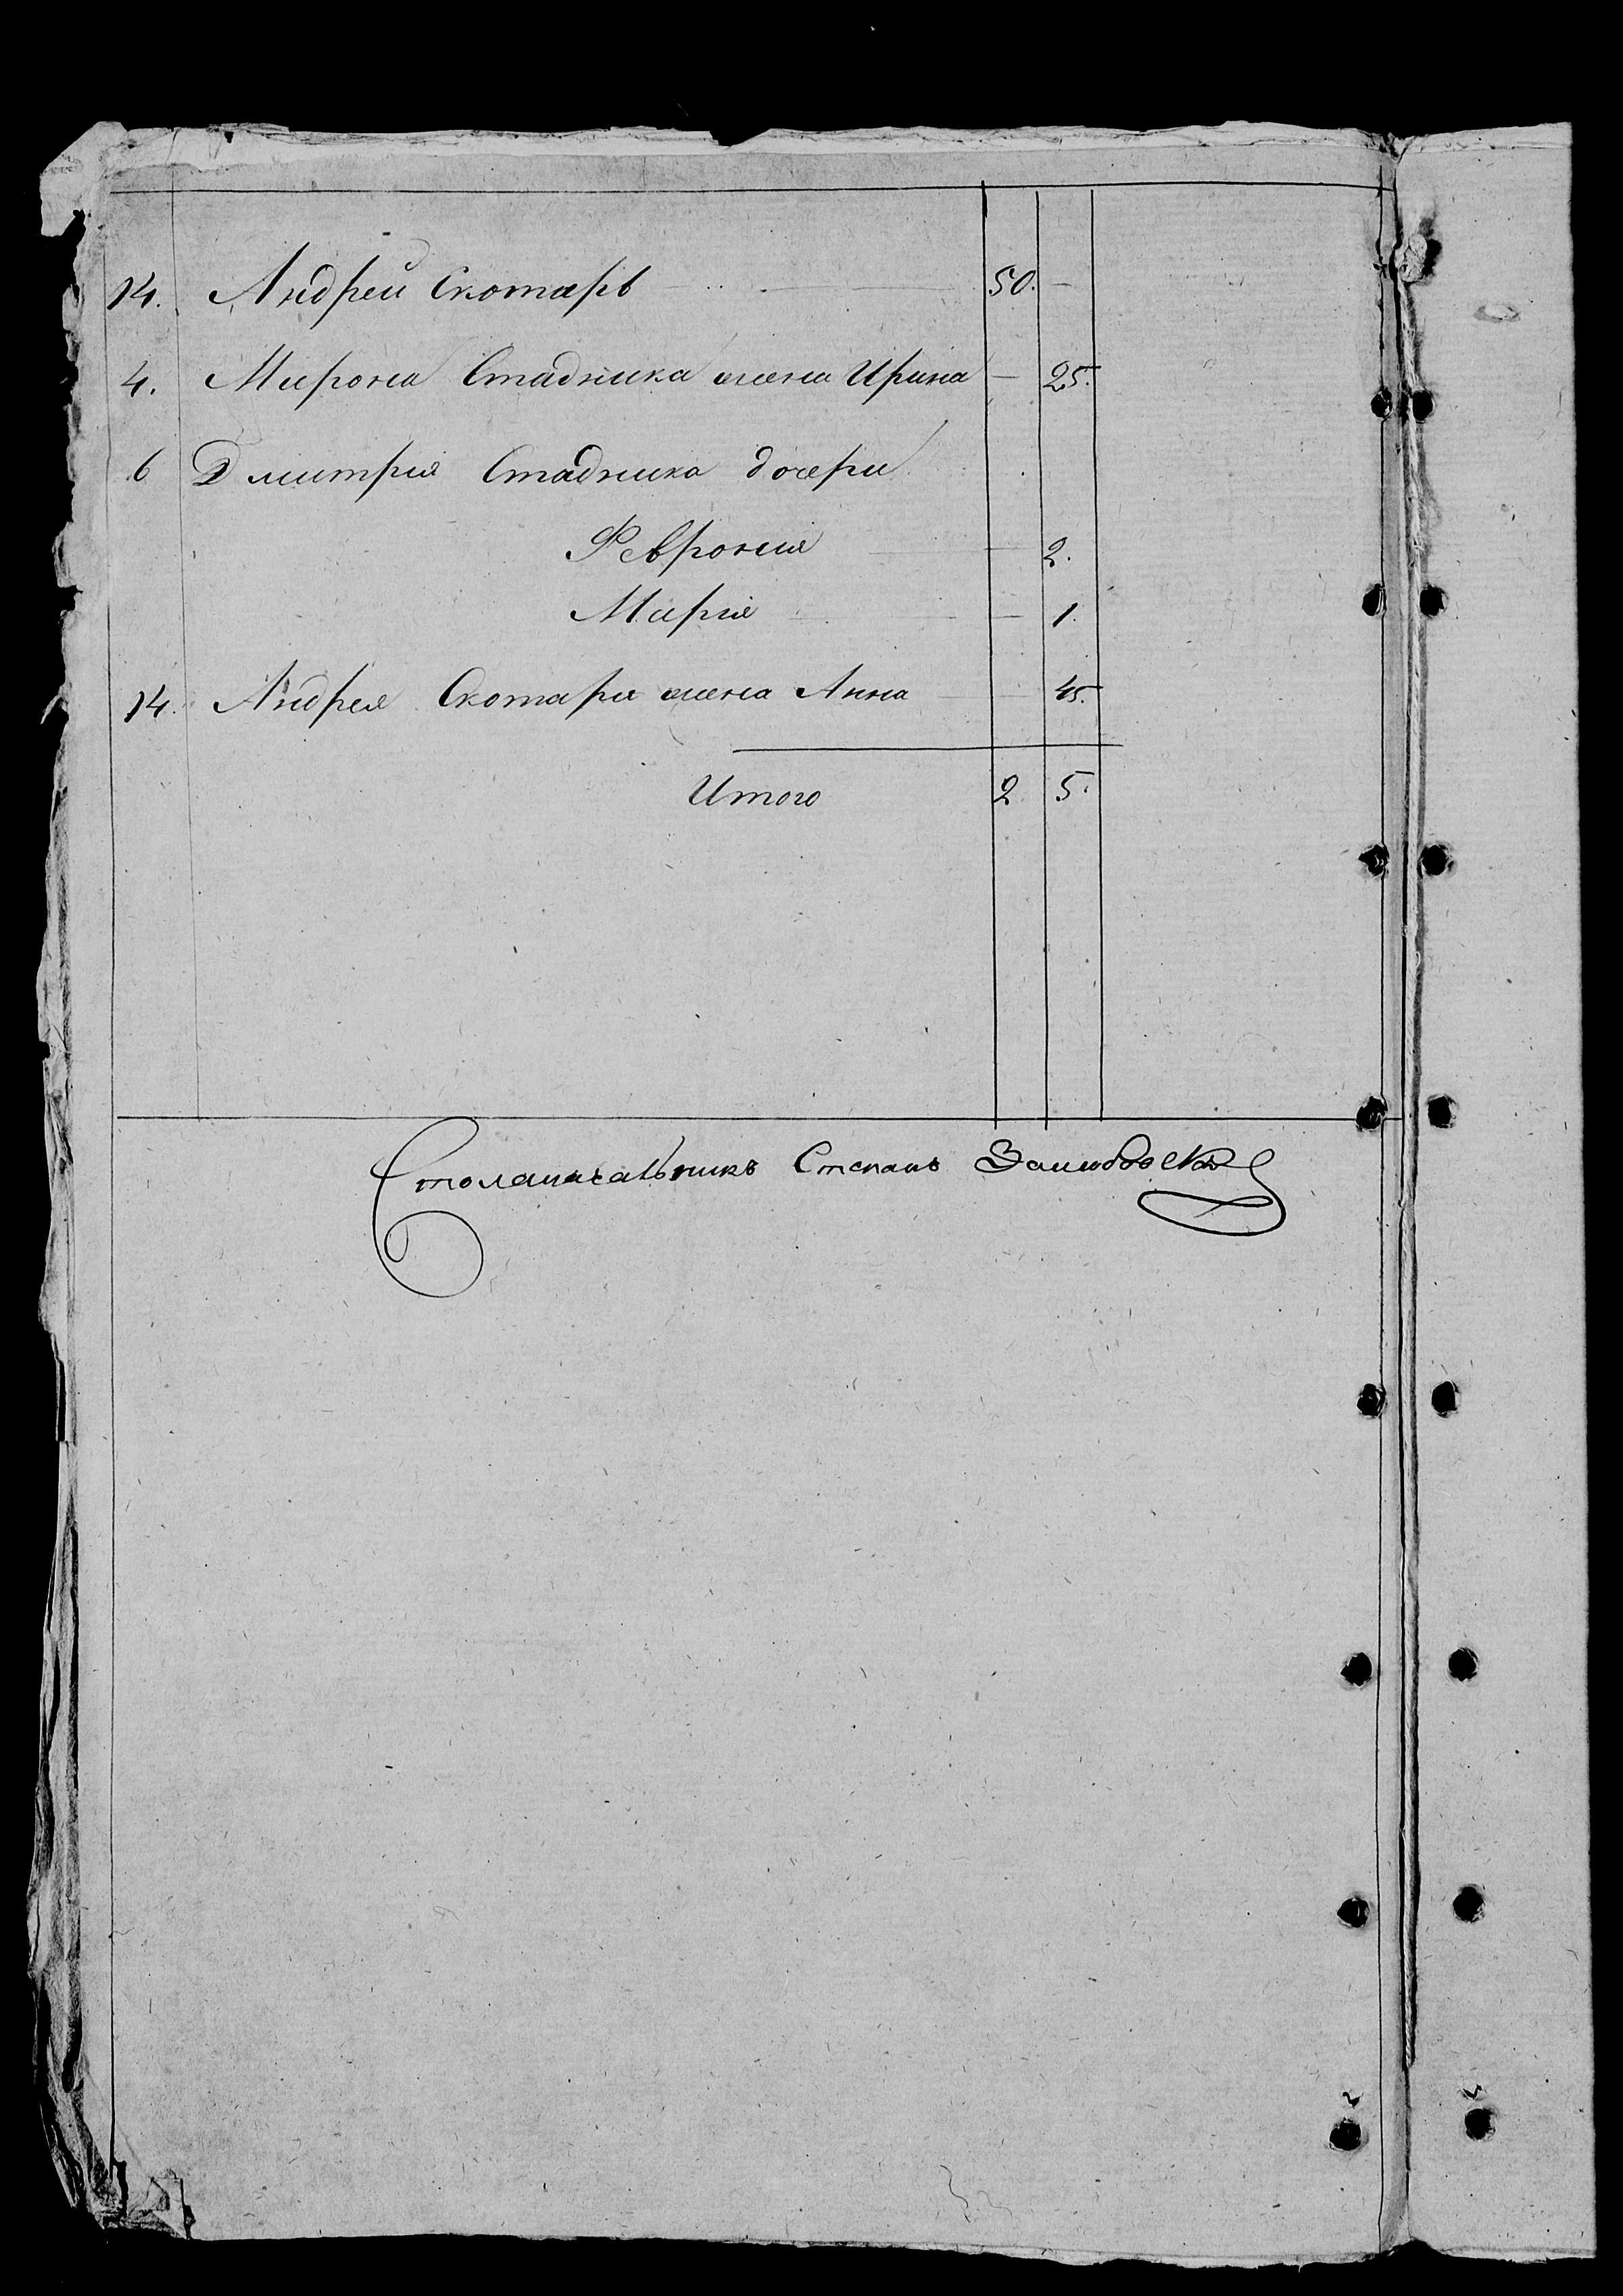 14. Андрей Скотарь 50. —
4. Мирона Стадника жена Ирина — 25.
6 Дмитрия Стадника дочери
Феврония — 2.
Мария — 1.
14. Андрея Скотаря жена Анна 45.
Итого 2 5.
Столаначальникъ Степанъ